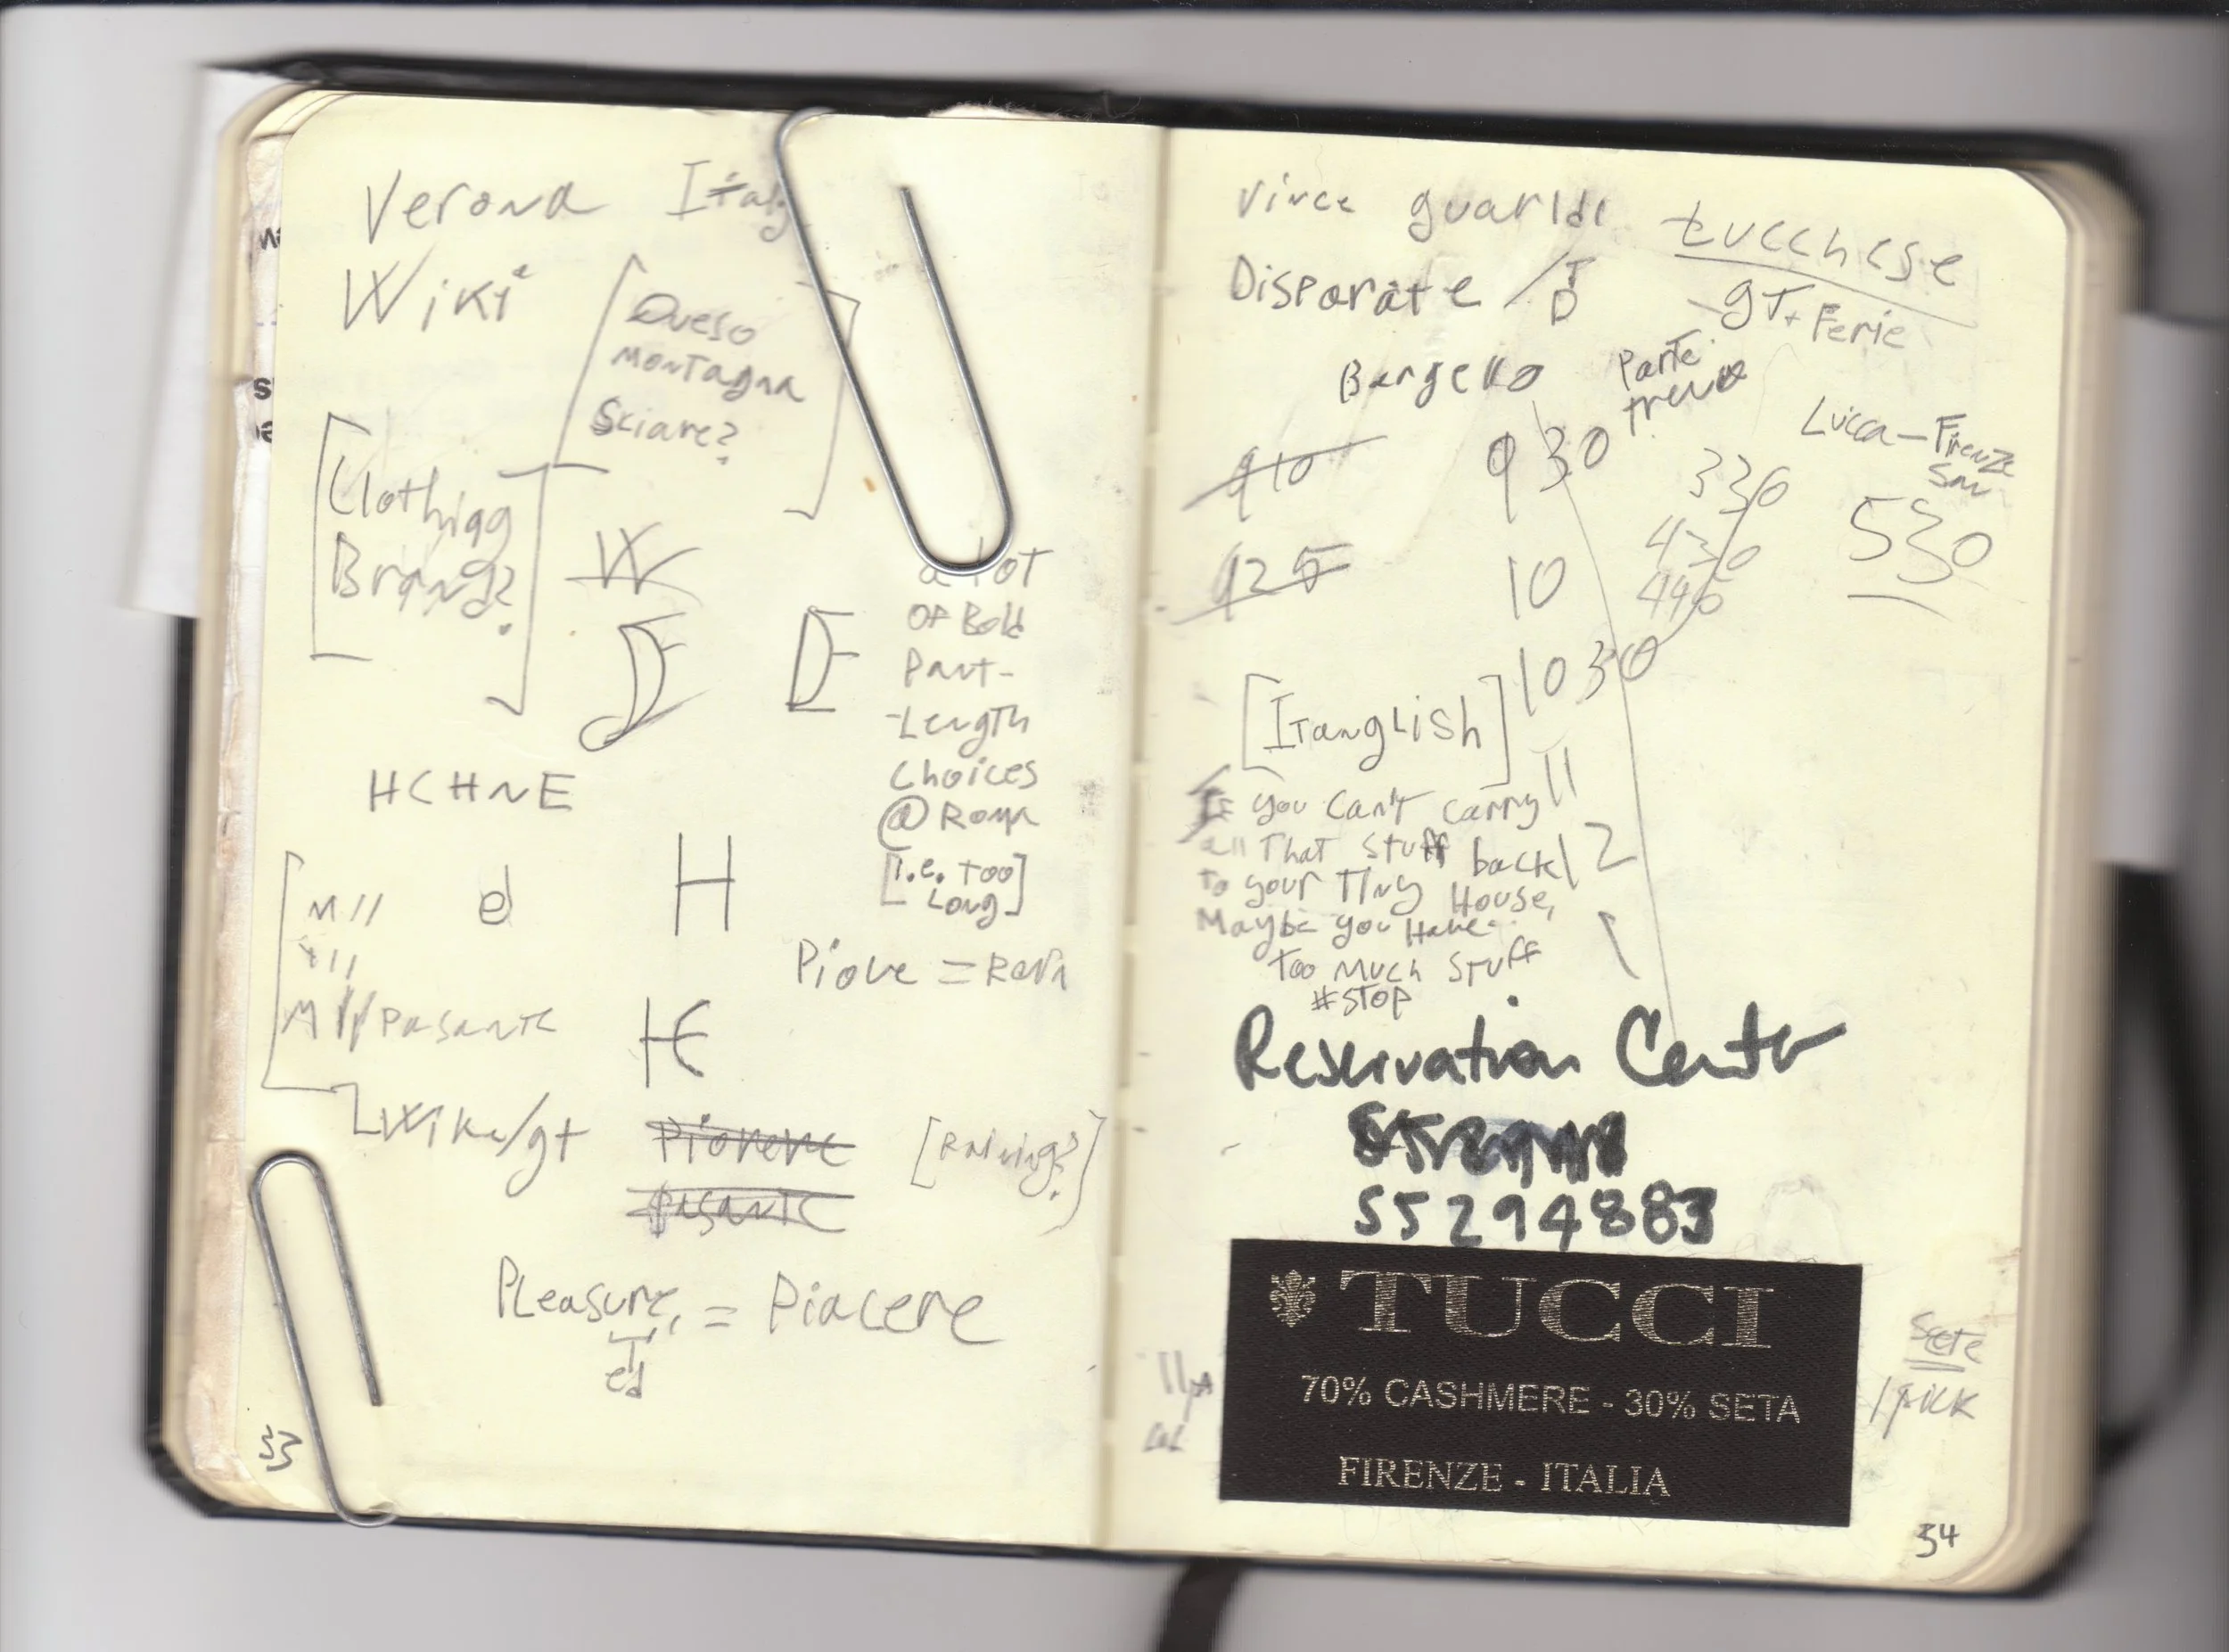 Verona Italy
Wiki
Queso
Montagna
Sciare?
Clothing
Brand?
W
a lot
of Bold
Pant-
-Length
Choices
@ Roma
[i.e. too
Long]
HCHNE
M//
d
H
M// Pasante
HE
Piove = Rain
Wiki/gt
Piovere
[Raining?]
Pasante
Pleasure = Piacere
ed
33
Vince guaraldi
Disparate / T
D
Lucchese
gT + Ferie
Bargello
Parte
treno
Lucca - Firenze
SMN
910
930
330
530
430
925
10
446
1030
[Itanglish]
11
If you can't carry
all That stuff back
12
To your Tiny House,
Maybe you Have
Too Much Stuff
#STOP
Reservation Center
55294883
TUCCI
70% CASHMERE - 30% SETA
FIRENZE - ITALIA
Sete
54